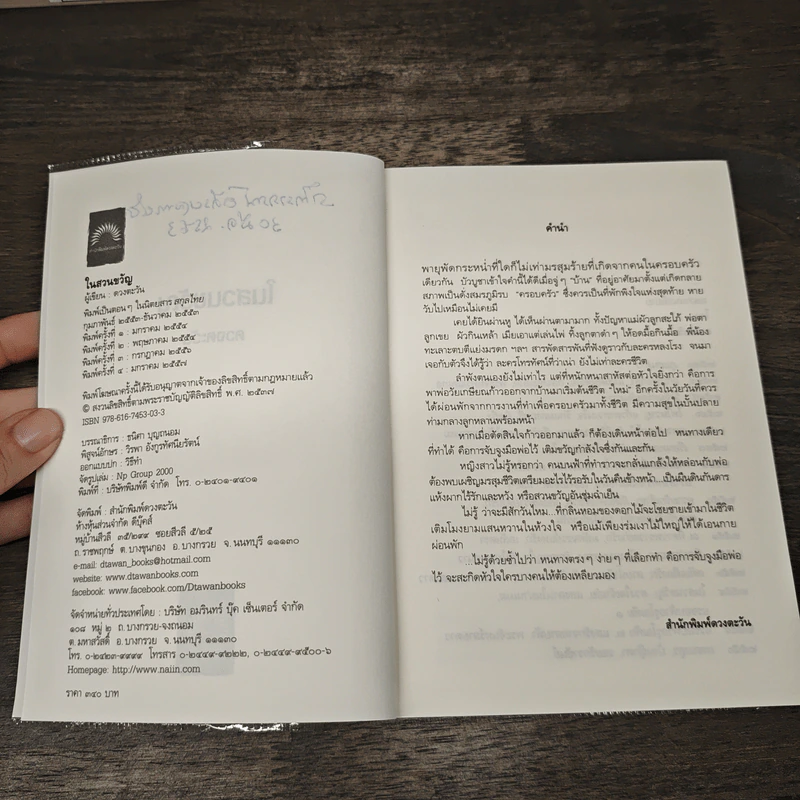 ในสวนขวัญ
ผู้เขียน : ดวงตะวัน
พิมพ์เป็นตอนๆ ในนิตยสาร สกุลไทย
กุมภาพันธ์ ๒๕๕๓-ธันวาคม ๒๕๕๓
พิมพ์ครั้งที่ ๑ : มกราคม ๒๕๕๔
พิมพ์ครั้งที่ ๒ : พฤษภาคม ๒๕๕๔
พิมพ์ครั้งที่ ๓ : กรกฎาคม ๒๕๕๖
พิมพ์ครั้งที่ ๔ : มกราคม ๒๕๕๗
พิมพ์โฆษณาครั้งนี้ได้รับอนุญาตจากเจ้าของลิขสิทธิ์ตามกฎหมายแล้ว
© สงวนลิขสิทธิ์ตามพระราชบัญญัติลิขสิทธิ์ พ.ศ. ๒๕๓๗
ISBN 978-616-7453-03-3
บรรณาธิการ : ชนิศา บุญถนอม
พิสูจน์อักษร : วิรพา อังกูรทัศนียรัตน์
ออกแบบปก : วิธีทำ
จัดรูปเล่ม : Np Group 2000
พิมพ์ที่ : บริษัทพิมพ์ดี จำกัด โทร. ๐-๒๔๐๑-๙๔๐๑
จัดพิมพ์ : สำนักพิมพ์ดวงตะวัน
ห้างหุ้นส่วนจำกัด ดีบุ๊คส์
หมู่บ้านสีวลี ๓๕/๒๙๙ ซอยสีวลี ๕/๒๕
ถ.ราชพฤกษ์ ต.บางขุนกอง อ.บางกรวย จ.นนทบุรี ๑๑๑๓๐
e-mail: dtawan_books@hotmail.com
website: www.dtawanbooks.com
facebook: www.facebook.com/Dtawanbooks
จัดจำหน่ายทั่วประเทศโดย : บริษัท อมรินทร์ บุ๊ค เซ็นเตอร์ จำกัด
๑๐๘ หมู่ ๒ ถ.บางกรวย-จงถนอม
ต.มหาสวัสดิ์ อ.บางกรวย จ.นนทบุรี ๑๑๑๓๐
โทร. ๐-๒๔๒๓-๙๙๙๙ โทรสาร ๐-๒๔๔๙-๙๒๒๒, ๐-๒๔๔๙-๙๕๐๐-๖
Homepage: http://www.naiin.com
ราคา ๓๔๐ บาท
คำนำ
พายุพัดกระหน่ำที่ใดก็ไม่เท่ามรสุมร้ายที่เกิดจากคนในครอบครัว
เดียวกัน บัวบูชาเข้าใจคำนี้ได้ดีเมื่อจู่ๆ "บ้าน" ที่อยู่อาศัยมาแต่เกิดกลาย
สภาพเป็นดั่งสมรภูมิรบ "ครอบครัว" ซึ่งควรเป็นที่พักพิงใจแห่งสุดท้าย หาย
วับไปเหมือนไม่เคยมี
เคยได้ยินผ่านหู ได้เห็นผ่านตามามาก ทั้งปัญหาแม่ผัวลูกสะใภ้ พ่อตา
ลูกเขย ผัวกินเหล้า เมียเอาแต่เล่นไพ่ ทิ้งลูกตาดำๆ ให้อดมื้อกินมื้อ พี่น้อง
ทะเลาะตบตีแย่งมรดก ฯลฯ สารพัดสารพันที่ฟังดูราวกับละครหลงโรง จนมา
เจอกับตัวจึงได้รู้ว่า ละครโทรทัศน์ที่ว่าเน่า ยังไม่เท่าละครชีวิต
ลำพังตนเองยังไม่เท่าไร แต่ที่หนักหนาสาหัสต่อหัวใจยิ่งกว่า คือการ
พาพ่อวัยเกษียณก้าวออกจากบ้านมาเริ่มต้นชีวิต "ใหม่" อีกครั้งในวัยวันที่ควร
ได้ผ่อนพักจากการงานที่ทำเพื่อครอบครัวมาทั้งชีวิต มีความสุขในบั้นปลาย
ท่ามกลางลูกหลานพร้อมหน้า
หากเมื่อตัดสินใจก้าวออกมาแล้ว ก็ต้องเดินหน้าต่อไป หนทางเดียว
ที่ทำได้ คือการจับจูงมือพ่อไว้ เติมขวัญกำลังใจซึ่งกันและกัน
หญิงสาวไม่รู้หรอกว่า คนบนฟ้าที่ทำราวจะกลั่นแกล้งให้หล่อนกับพ่อ
ต้องพบเผชิญมรสุมชีวิตเตรียมอะไรไว้รอรับในวันคืนข้างหน้า...เป็นผืนดินกันดาร
แห้งผากไร้รักและหวัง หรือสวนขวัญอันชุ่มฉ่ำเย็น
ไม่รู้ ว่าจะมีสักวันไหม..ที่กลิ่นหอมของดอกไม้จะโชยชายเข้ามาในชีวิต
เติมโมงยามแสนหวานในห้วงใจ หรือแม้เพียงร่มเงาไม้ใหญ่ให้ได้เอนกาย
ผ่อนพัก
...ไม่รู้ด้วยซ้ำไปว่า หนทางตรงๆ ง่ายๆ ที่เลือกทำ คือการจับจูงมือพ่อ
ไว้ จะสะกิดหัวใจใครบางคนให้ต้องเหลียวมอง
สำนักพิมพ์ดวงตะวัน